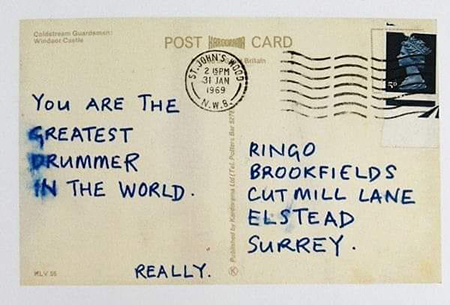 Coldstream Guardsman:
Windsor Castle
POST KARDORAMA CARD
Britain
ST. JOHN'S WOOD
2 15PM
31 JAN
1969
N.W.8.
5D
YOU ARE THE
GREATEST
DRUMMER
IN THE WORLD.
REALLY.
Published by Kardorama Ltd (Tel. Potters Bar
RINGO
BROOKFIELDS
CUTMILL LANE
ELSTEAD
SURREY.
KLV 36